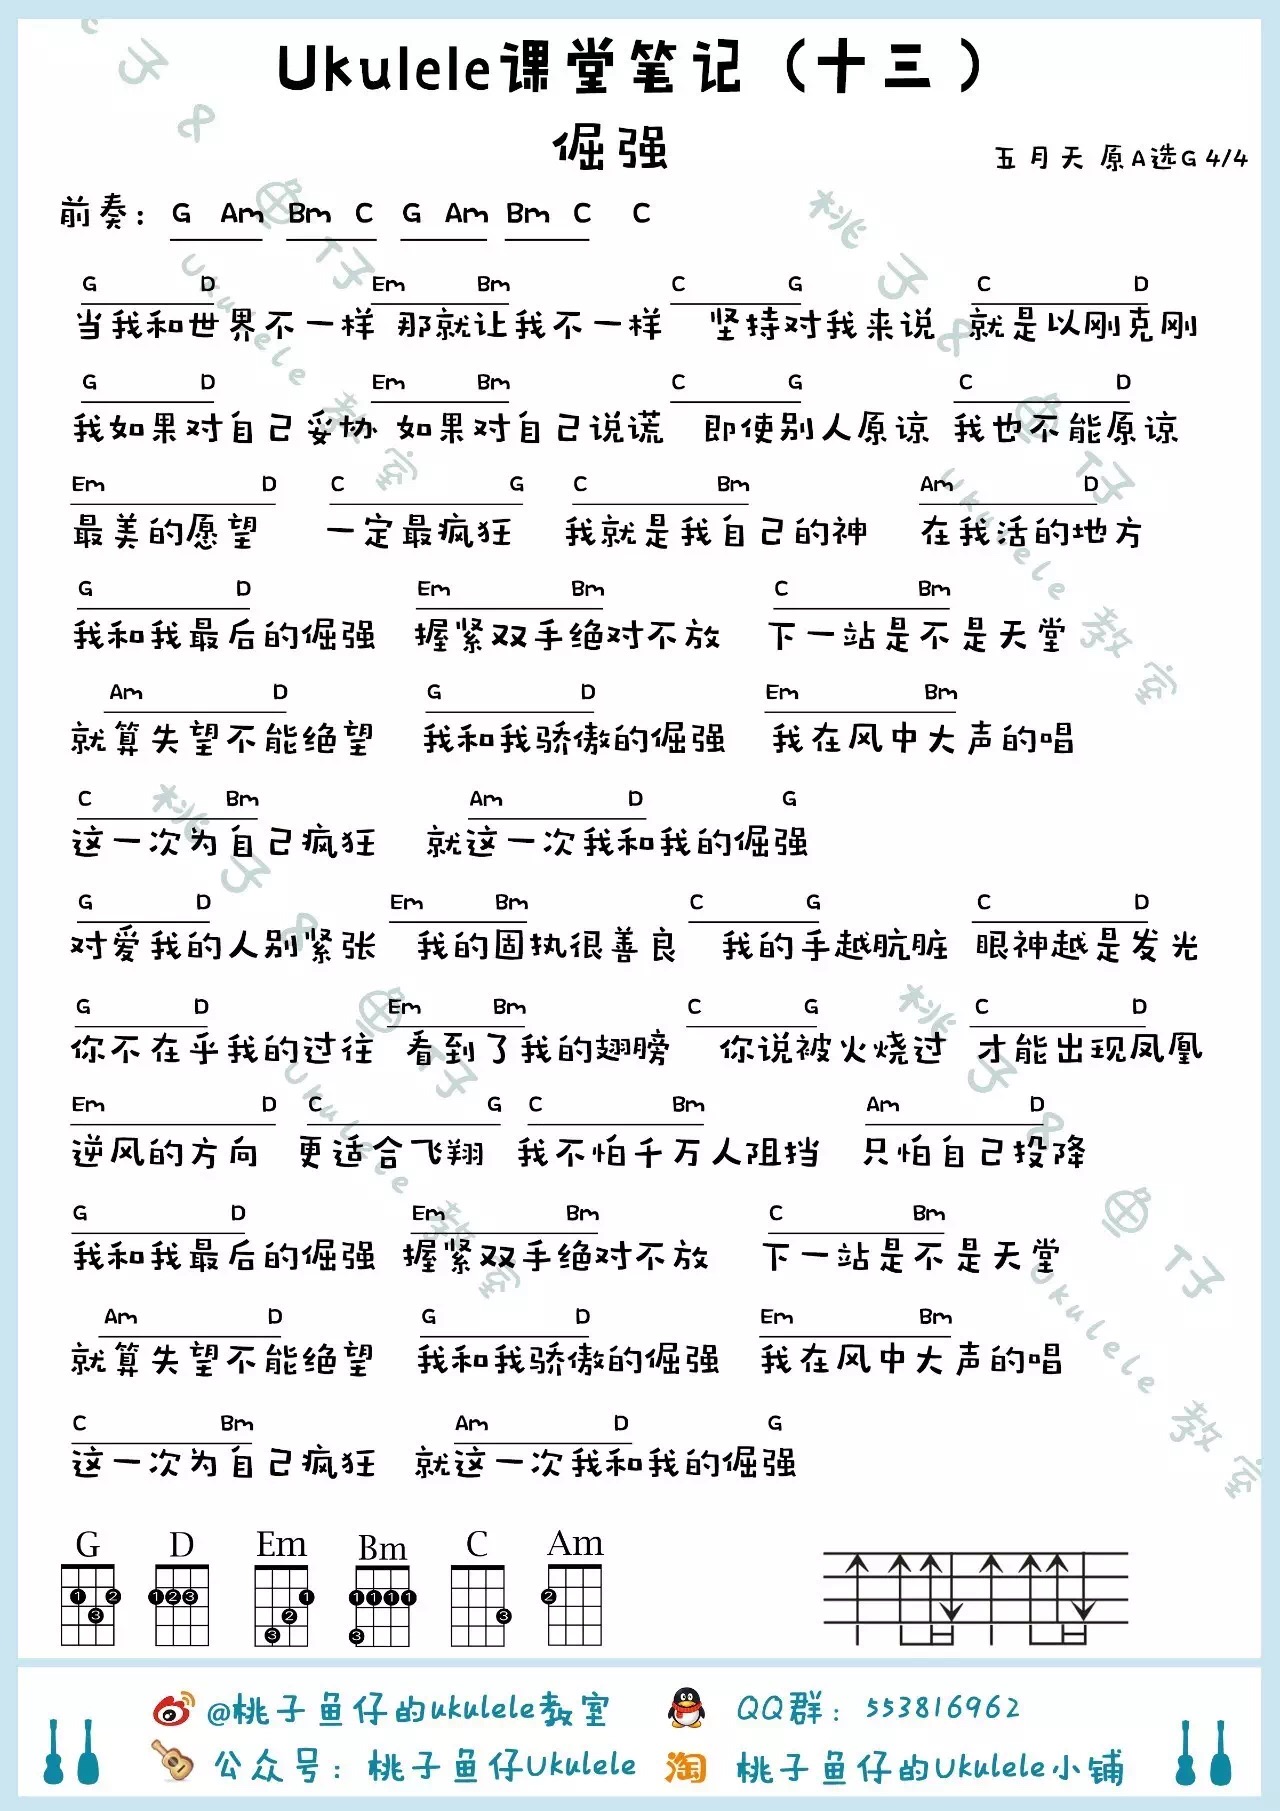 Ukulele课堂笔记（十三）
倔强
五月天 原A选G 4/4
前奏: G Am Bm C G Am Bm C C
G D Em Bm C G C D
当我和世界不一样 那就让我不一样 坚持对我来说 就是以刚克刚
G D Em Bm C G C D
我如果对自己妥协 如果对自己说谎 即使别人原谅 我也不能原谅
Em D C G C Bm Am D
最美的愿望 一定最疯狂 我就是我自己的神 在我活的地方
G D Em Bm C Bm
我和我最后的倔强 握紧双手绝对不放 下一站是不是天堂
Am D G D Em Bm
就算失望不能绝望 我和我骄傲的倔强 我在风中大声的唱
C Bm Am D G
这一次为自己疯狂 就这一次我和我的倔强
G D Em Bm C G C D
对爱我的人别紧张 我的固执很善良 我的手越肮脏 眼神越是发光
G D Em Bm C G C D
你不在乎我的过往 看到了我的翅膀 你说被火烧过 才能出现凤凰
Em D C G C Bm Am D
逆风的方向 更适合飞翔 我不怕千万人阻挡 只怕自己投降
G D Em Bm C Bm
我和我最后的倔强 握紧双手绝对不放 下一站是不是天堂
Am D G D Em Bm
就算失望不能绝望 我和我骄傲的倔强 我在风中大声的唱
C Bm Am D G
这一次为自己疯狂 就这一次我和我的倔强
G D Em Bm C Am
@桃子鱼仔的ukulele教室 QQ群：553816962
公众号：桃子鱼仔Ukulele 淘 桃子鱼仔的Ukulele小铺